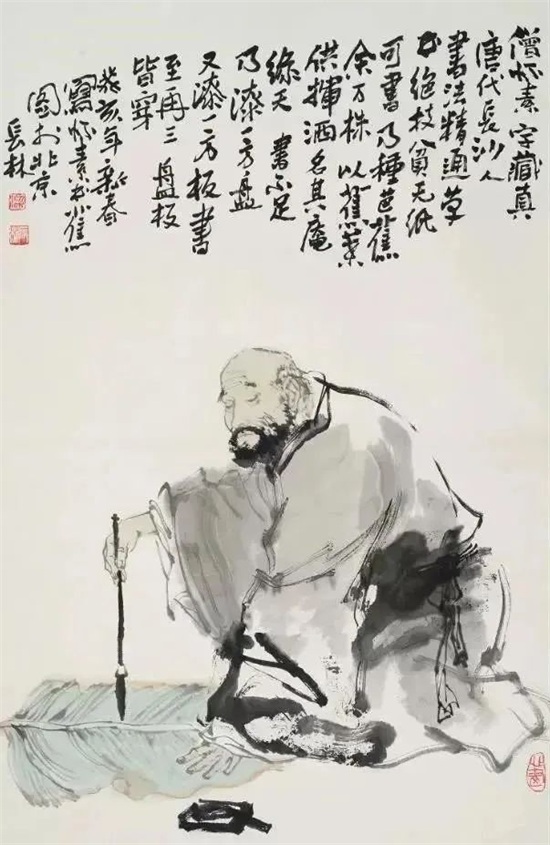 僧怀素 字藏真
唐代長沙人
書法精通草
书绝技貧无纸
可書乃種芭蕉
余万株 以蕉葉
供揮洒名其庵
綠天 書不足
乃漆一方盘
又漆一方板書
至再三 盘板
皆穿
癸亥年新春
寫怀素书蕉
图於北京
長林